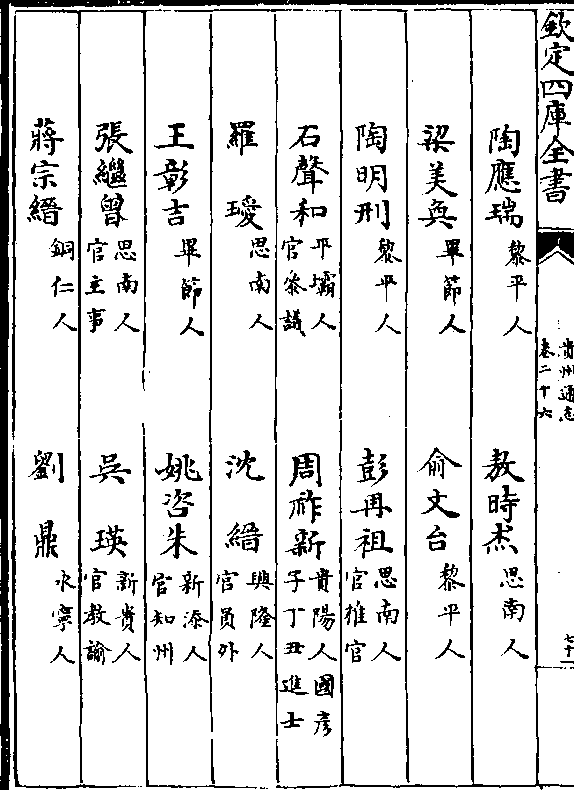 欽定四庫全書
貴州通志
卷二十六
七十一
陶應瑞 黎平人 敖時杰 思南人
梁美奐 畢節人 俞文台 黎平人
陶明刑 黎平人 彭再祖 思南人官推官
石聲和 平壩人官叅議 周祚新 貴陽人國彥子丁丑進士
羅璦 思南人 沈縉 興隆人官員外
王彰吉 畢節人 姚咨朱 新添人官知州
張繼曾 思南人官主事 吳瑛 新貴人官教諭
蔣宗縉 銅仁人 劉鼎 永寧人